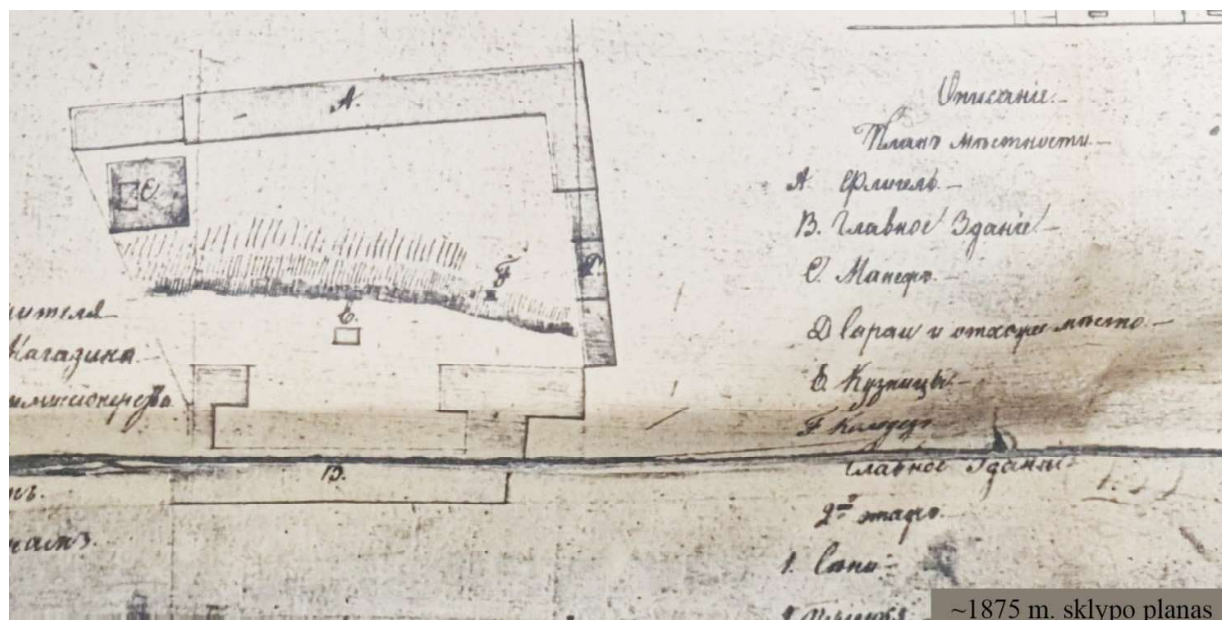 А.
С
F
D
E.
В.
ителя
Магазина
Описаніе.
Планъ мѣстности.
А Флигель.
В. Главное Зданіе
С. Манежъ.
D Сараи и мѣсто.
E Кузницы
F Колодезь
Главное
2й этажъ.
1. Сѣни
~1875 m. sklypo planas